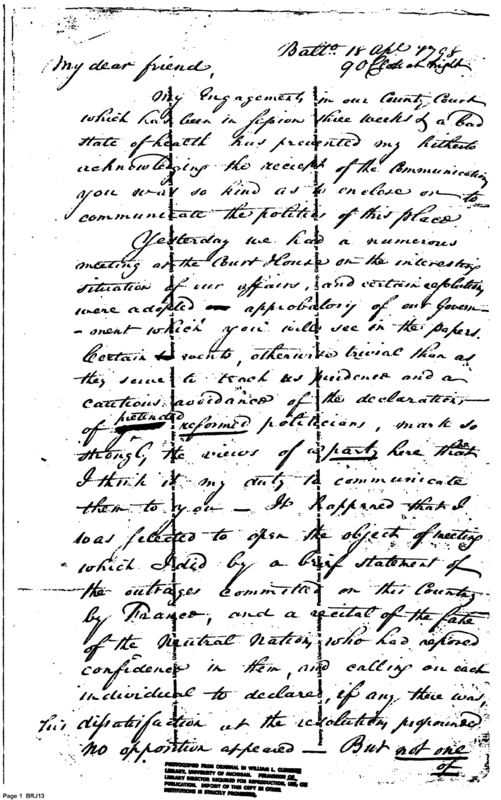 Balto. 18 Apl 1798
9 OClock at Night
My dear friend,
My Engagements in our County Court
which has been in session three weeks & a bad
state of health has prevented my hitherto
acknowledging the reciept of the Communication
you was so kind as to enclose or to
communicate the politics of this place
Yesterday we had a numerous
meeting at the Court House on the interesting
situation of our affairs, and certain resolutions
were adopted approbatory of our Govern-
-ment which you will see in the papers.
Certain events, otherwise trivial than as
they serve to teach us prudence and a
cautious avoidance of the declarations
of pretended reformed politicians, mark so
strongly the views of a party here that
I think it my duty to communicate
them to you — It happened that I
was selected to open the object of meeting
which I did by a brief statement of
the outrages committed on this Country
by France, and a recital of the fate
of the Neutral Nations who had reposed
confidence in them, and calling on each
individual to declared, if any there was,
his dissatisfaction at the resolutions proposed
no opposition appeared — But not one
of
PHOTOCOPIED FROM ORIGINAL IN WILLIAM L. CLEMENTS
LIBRARY, UNIVERSITY OF MICHIGAN. PERMISSION OF
LIBRARY DIRECTOR REQUIRED FOR REPRODUCTION, USE, OR
PUBLICATION. DEPOSIT OF THIS COPY IN OTHER
INSTITUTIONS IS STRICTLY PROHIBITED.
Page 1 BRJ13